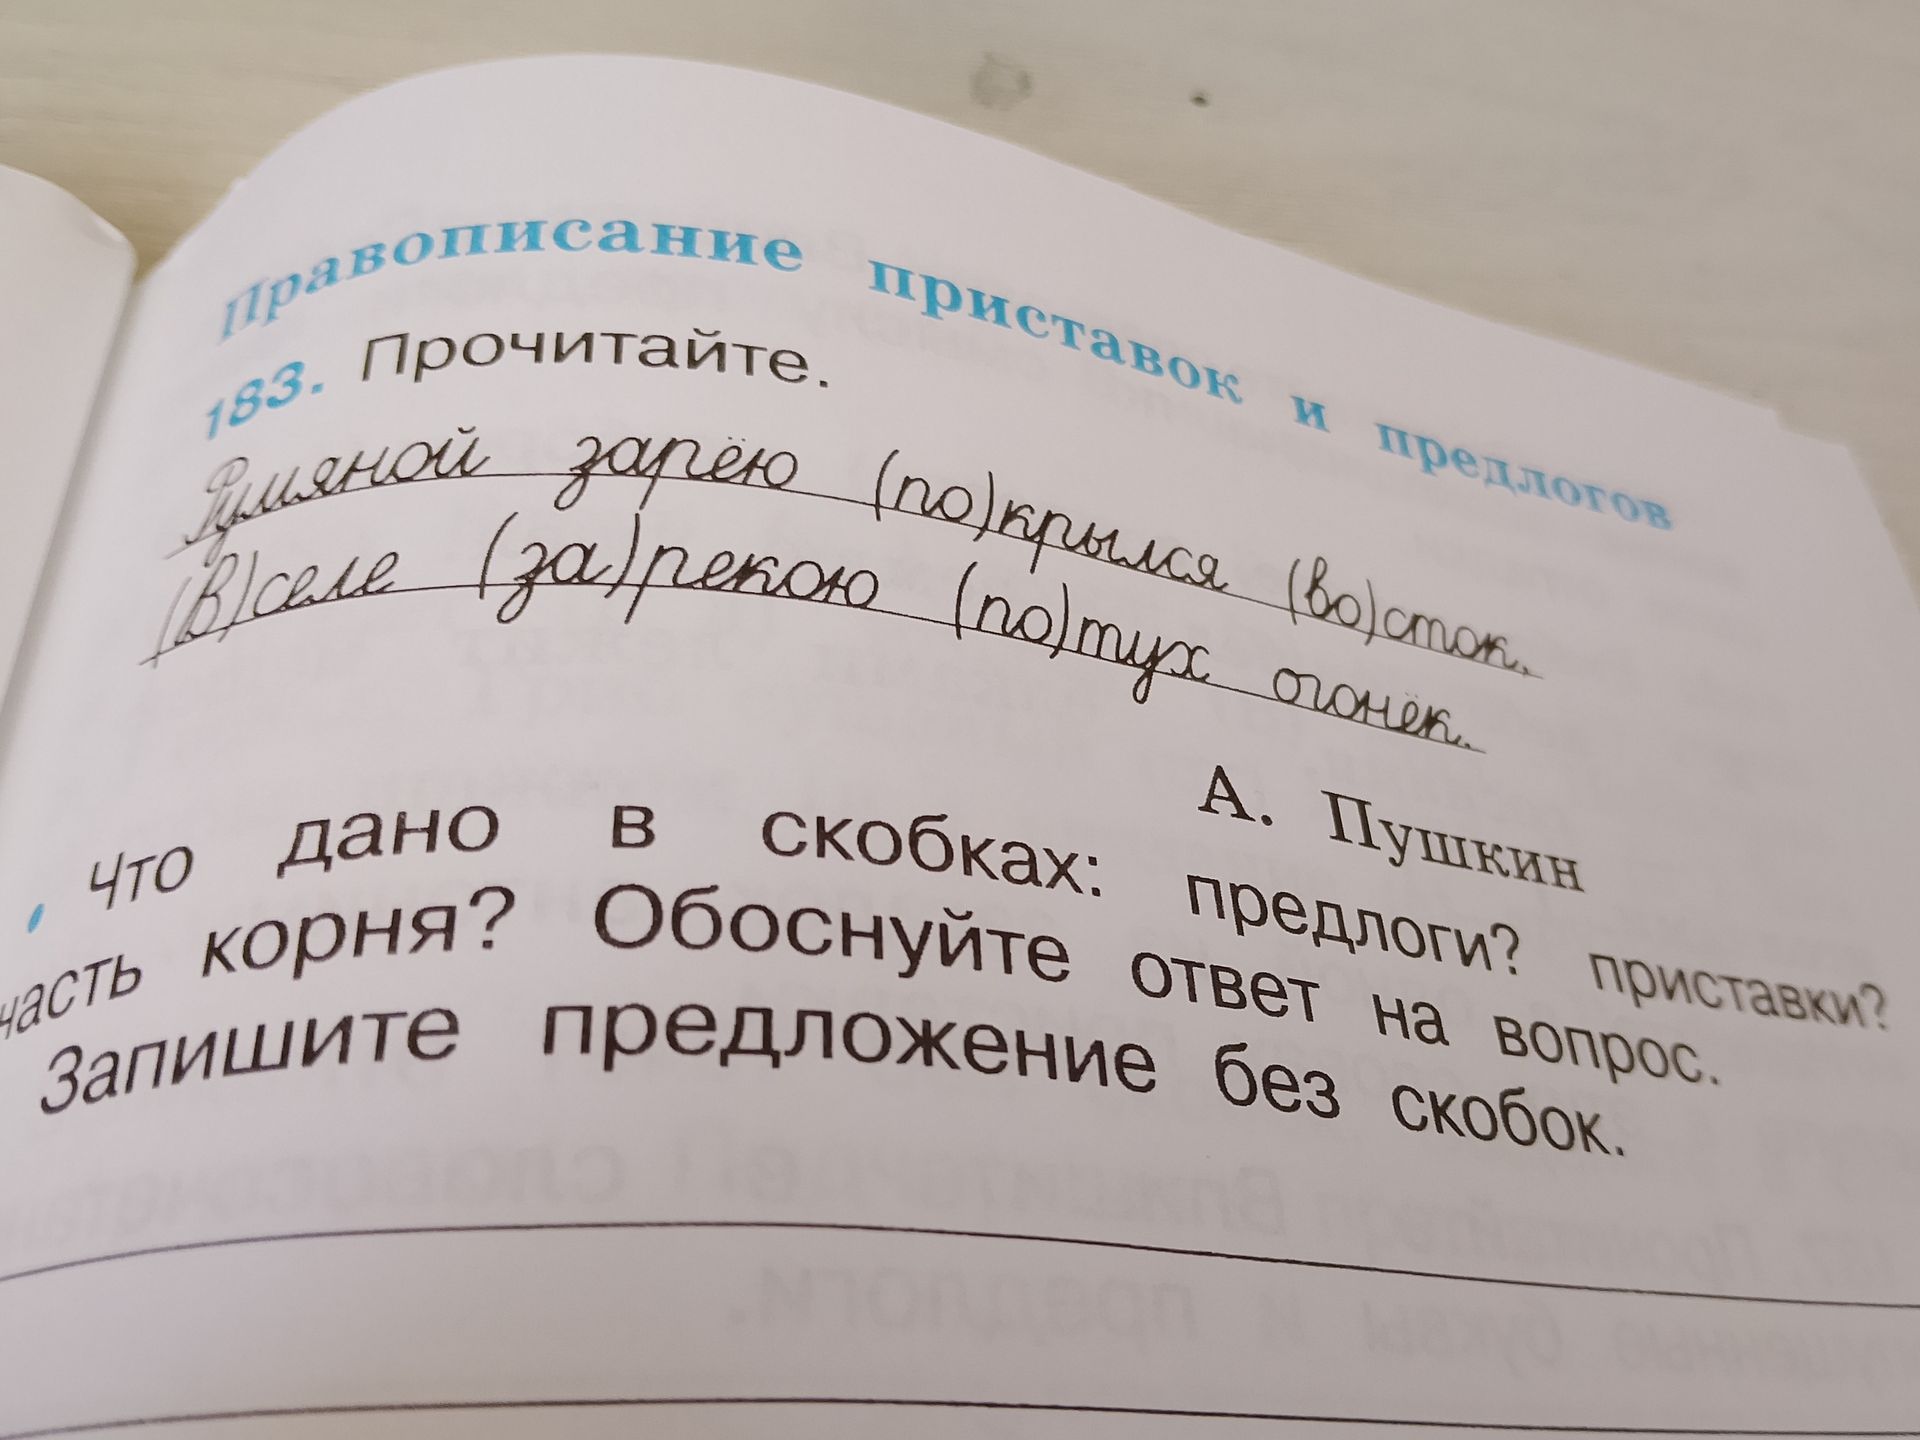 Правописание приставок и предлогов
183. Прочитайте.
Румяной зарёю (по)крылся (во)сток.
(В)селе (за)рекою (по)тух огонёк.
А. Пушкин
• Что дано в скобках: предлоги? приставки?
часть корня? Обоснуйте ответ на вопрос.
Запишите предложение без скобок.